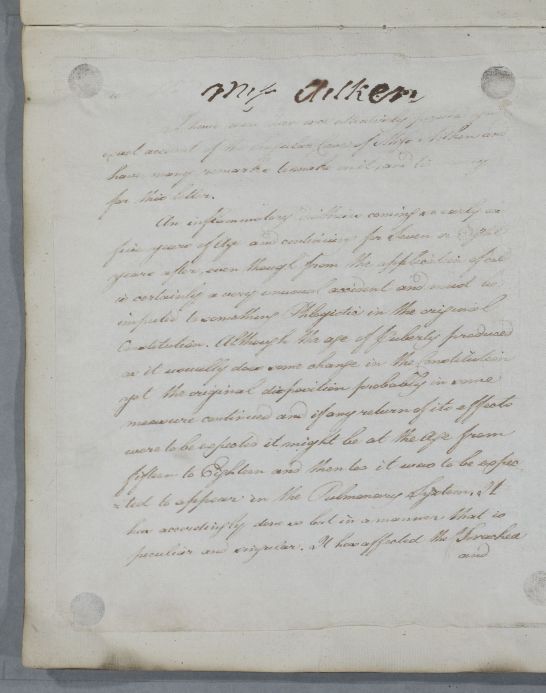 Miss Aitken
I have now over and attentively perused your
exact account of the singular Case of Miss Aitken and
have many remarks to make
for this letter.
An inflammatory coming so early as
five years of Age and continuing for Seven or Eight
years after, even though from the application of cold
is certainly a very unusual accident and must be
imputed to something Phlogistic in the original
Constitution. Although the age of Puberty produced
as it usually does some change in the Constitution
yet the original disposition probably in some
measure continued and if any return of its effects
were to be expected it might be at the Age from
fifteen to Eighteen and then too it was to be expec-
-ted to appear in the Pulmonary System. It
has accordingly done so but in a manner that is
peculiar and singular. It has affected the Trachea
and